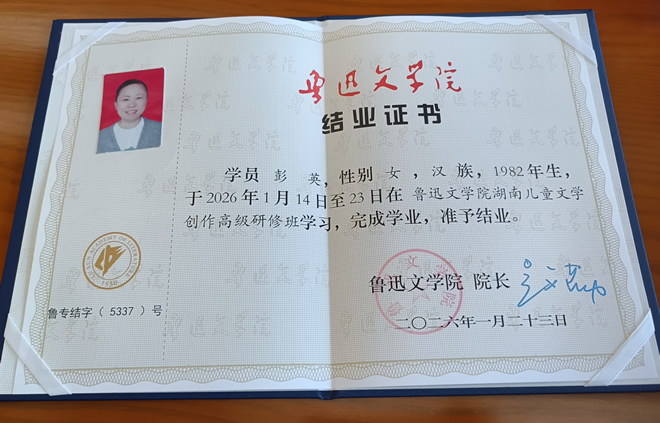 鲁迅文学院
结业证书
学员 彭 英，性别 女，汉 族，1982年生，
于2026年1月14日至23日在 鲁迅文学院湖南儿童文学
创作高级研修班学习，完成学业，准予结业。
鲁迅文学院 院长
二〇二六年一月二十三日
1950
鲁专结字（ 5337 ）号